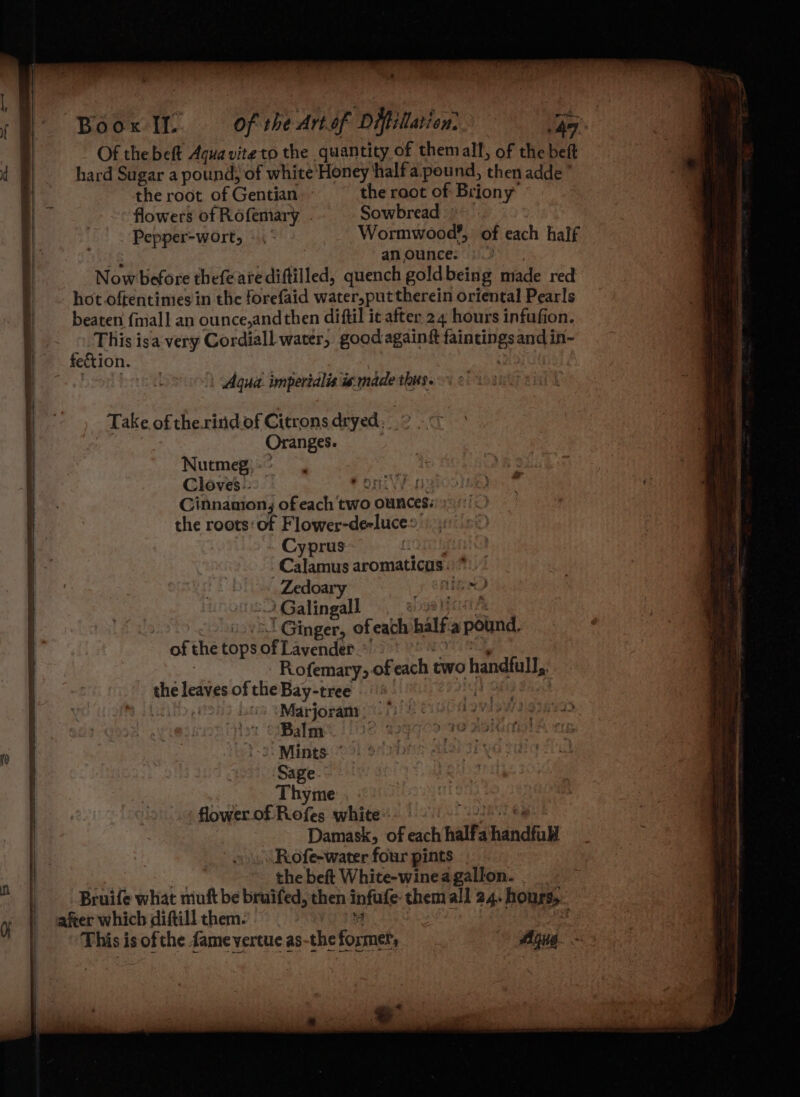 Book II. Of the Art of Diſtillation. 47
Of the beſt Aqua vitæ to the quantity of them all, of the beſt
hard Sugar a pound, of white Honey half a pound, then adde
the root of Gentian the root of Briony
flowers of Roſemary Sowbread
Pepper-wort, Wormwood, of each half
an ounce.
Now before theſe are diſtilled, quench gold being made red
hot oftentimes in the foreſaid water, put therein oriental Pearls
beaten ſmall an ounce, and then diſtil it after 24 hours infuſion.
This is a very Cordiall water, good againſt faintings and in-
fection.
Aqua imperialis is made thus.
Take of the rind of Citrons dryed,
Oranges.
Nutmeg,
Cloves
Cinnamon, of each two ounces.
the roots of Flower-de-luce
Cyprus
Calamus aromaticus
Zedoary
Galingall
Ginger, of each half a pound.
of the tops of Lavender
Roſemary, of each two handfull,
the leaves of the Bay-tree
Marjoram
Balm
Mints
Sage
Thyme
flower of Roſes white
Damask, of each half a handfull
Roſe-water four pints
the beſt White-wine a gallon.
Bruiſe what muſt be bruiſed, then infuſe them all 24. hours,
after which diſtill them.
This is of the ſame vertue as the former,
Aqua